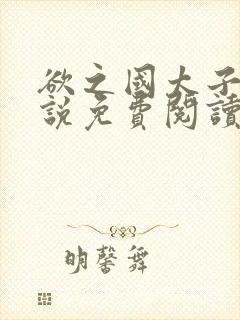 欲之國大子
說免費閱讀
明馨舞